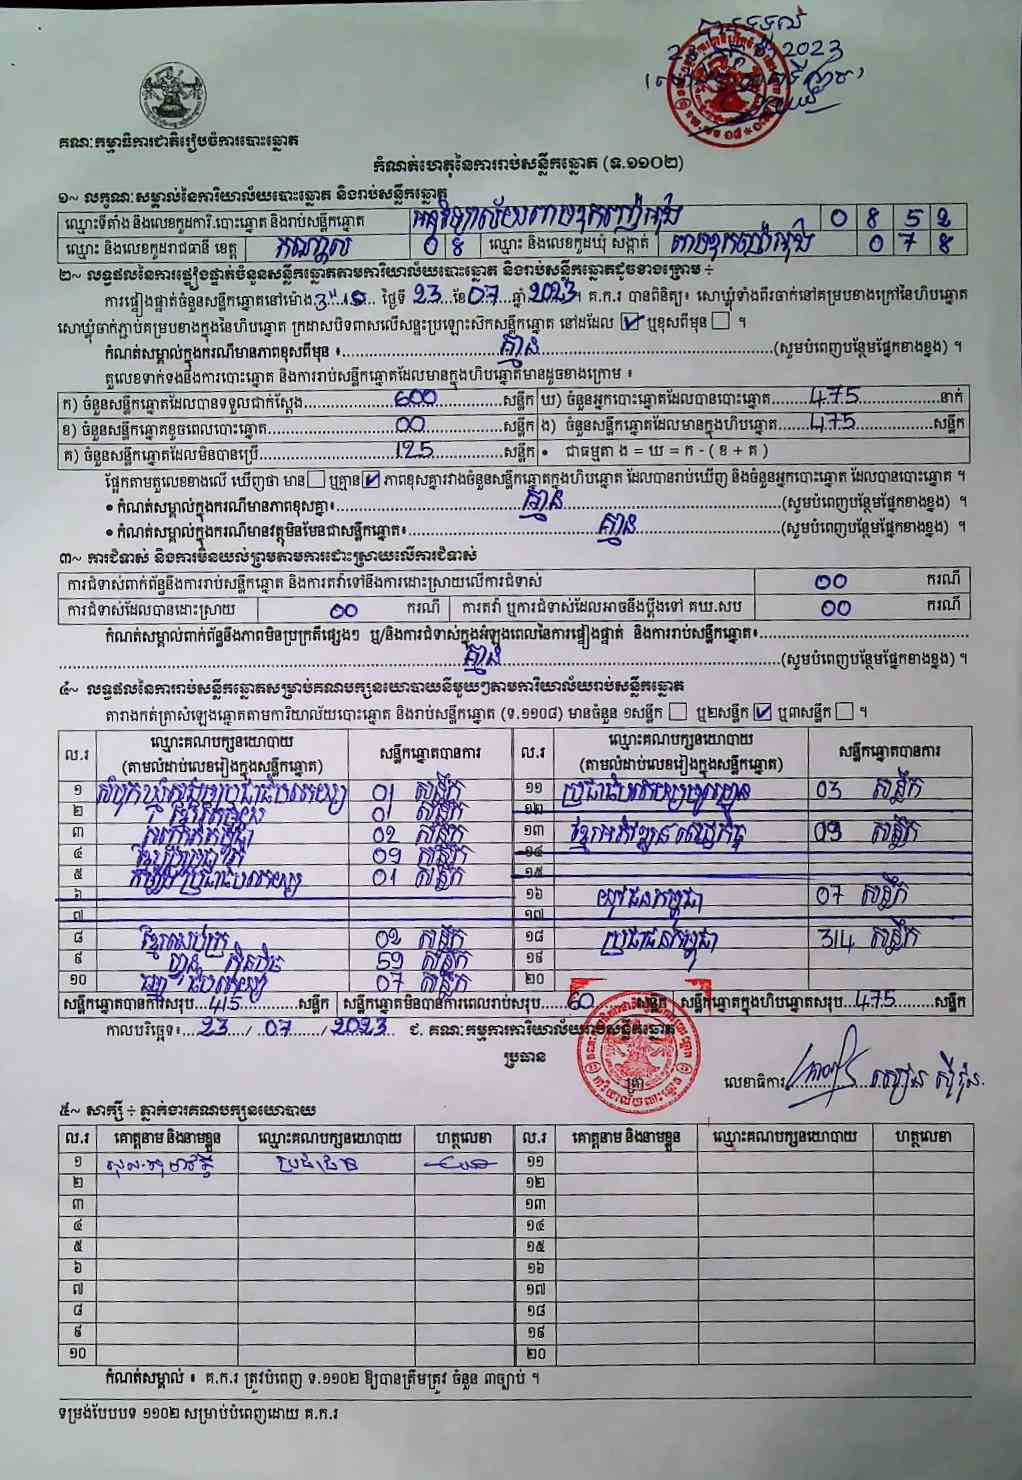 2023
គណៈកម្មាធិការជាតិរៀបចំការបោះឆ្នោត
កំណត់ហេតុនៃការរាប់សន្លឹកឆ្នោត (ទ.១១០២)
១~ លក្ខណៈសម្គាល់នៃការិយាល័យបោះឆ្នោត និងរាប់សន្លឹកឆ្នោត
ឈ្មោះទីតាំង និងលេខកូដការិ.បោះឆ្នោត និងរាប់សន្លឹកឆ្នោត 0 8 5 2
ឈ្មោះ និងលេខកូដរាជធានី ខេត្ត កណ្តាល 0 8 ឈ្មោះ និងលេខកូដឃុំ សង្កាត់ 0 7 8
២~ លទ្ធផលនៃការផ្ទៀងផ្ទាត់ចំនួនសន្លឹកឆ្នោតតាមការិយាល័យបោះឆ្នោត និងរាប់សន្លឹកឆ្នោតដូចខាងក្រោម ÷
ការផ្ទៀងផ្ទាត់ចំនួនសន្លឹកឆ្នោតនៅម៉ោង ថ្ងៃទី 23 ខែ 07 ឆ្នាំ 2023។ គ.ក.រ បានពិនិត្យ៖ សោឃ្លុំទាំងពីរចាក់នៅគម្របខាងក្រៅនៃហិបឆ្នោត
សោឃ្លុំចាក់ភ្ជាប់គម្របខាងក្នុងនៃហិបឆ្នោត ក្រដាសបិទពាសលើសន្ទះប្រឡោះស៊កសន្លឹកឆ្នោត នៅដដែល ☑ ឬខុសពីមុន ☐ ។
កំណត់សម្គាល់ក្នុងករណីមានភាពខុសពីមុន ៖ គ្មាន (សូមបំពេញបន្ថែមផ្នែកខាងខ្នង) ។
តួលេខទាក់ទងនឹងការបោះឆ្នោត និងការរាប់សន្លឹកឆ្នោតដែលមានក្នុងហិបឆ្នោតមានដូចខាងក្រោម ៖
ក) ចំនួនសន្លឹកឆ្នោតដែលបានទទួលជាក់ស្តែង 600 សន្លឹក ឃ) ចំនួនអ្នកបោះឆ្នោតដែលបានបោះឆ្នោត 475 នាក់
ខ) ចំនួនសន្លឹកឆ្នោតខូចពេលបោះឆ្នោត 00 សន្លឹក ង) ចំនួនសន្លឹកឆ្នោតដែលមានក្នុងហិបឆ្នោត 475 សន្លឹក
គ) ចំនួនសន្លឹកឆ្នោតដែលមិនបានប្រើ 125 សន្លឹក • ជាធម្មតា ង = ឃ = ក - ( ខ + គ )
ផ្អែកតាមតួលេខខាងលើ ឃើញថា មាន ☐ ឬគ្មាន ☑ ភាពខុសគ្នារវាងចំនួនសន្លឹកឆ្នោតក្នុងហិបឆ្នោត ដែលបានរាប់ឃើញ និងចំនួនអ្នកបោះឆ្នោត ដែលបានបោះឆ្នោត ។
• កំណត់សម្គាល់ក្នុងករណីមានភាពខុសគ្នា៖ គ្មាន (សូមបំពេញបន្ថែមផ្នែកខាងខ្នង) ។
• កំណត់សម្គាល់ក្នុងករណីមានវត្ថុមិនមែនជាសន្លឹកឆ្នោត៖ គ្មាន (សូមបំពេញបន្ថែមផ្នែកខាងខ្នង) ។
៣~ ការជំទាស់ និងការមិនយល់ព្រមតាមការដោះស្រាយលើការជំទាស់
ការជំទាស់ពាក់ព័ន្ធនឹងការរាប់សន្លឹកឆ្នោត និងការតវ៉ាទៅនឹងការដោះស្រាយលើការជំទាស់ 00 ករណី
ការជំទាស់ដែលបានដោះស្រាយ 00 ករណី ការតវ៉ា ឬការជំទាស់ដែលអាចនឹងប្តឹងទៅ គឃ.សប 00 ករណី
កំណត់សម្គាល់ពាក់ព័ន្ធនឹងភាពមិនប្រក្រតីផ្សេងៗ ឬ/និងការជំទាស់ក្នុងអំឡុងពេលនៃការផ្ទៀងផ្ទាត់ និងការរាប់សន្លឹកឆ្នោត៖
គ្មាន (សូមបំពេញបន្ថែមផ្នែកខាងខ្នង) ។
៤~ លទ្ធផលនៃការរាប់សន្លឹកឆ្នោតសម្រាប់គណបក្សនយោបាយនីមួយៗតាមការិយាល័យរាប់សន្លឹកឆ្នោត
តារាងកត់ត្រាសំឡេងឆ្នោតតាមការិយាល័យបោះឆ្នោត និងរាប់សន្លឹកឆ្នោត (ទ.១១០៨) មានចំនួន ១សន្លឹក ☐ ឬ២សន្លឹក ☑ ឬ៣សន្លឹក ☐ ។
ល.រ ឈ្មោះគណបក្សនយោបាយ (តាមលំដាប់លេខរៀងក្នុងសន្លឹកឆ្នោត) សន្លឹកឆ្នោតបានការ ល.រ ឈ្មោះគណបក្សនយោបាយ (តាមលំដាប់លេខរៀងក្នុងសន្លឹកឆ្នោត) សន្លឹកឆ្នោតបានការ
១ 01 សន្លឹក ១១ 03 សន្លឹក
២ 01 សន្លឹក ១២
៣ 02 សន្លឹក ១៣ 09 សន្លឹក
៤ 09 សន្លឹក ១៤
៥ កម្ពុជា 01 សន្លឹក ១៥
៦ ១៦ យុវជនកម្ពុជា 07 សន្លឹក
៧ ១៧
៨ 02 សន្លឹក ១៨ ប្រជាជនកម្ពុជា 314 សន្លឹក
៩ ហ្វ៊ុនស៊ិនប៉ិច 59 សន្លឹក ១៩
១០ 07 សន្លឹក ២០
សន្លឹកឆ្នោតបានការសរុប 415 សន្លឹក សន្លឹកឆ្នោតមិនបានការពេលរាប់សរុប 60 សន្លឹក សន្លឹកឆ្នោតក្នុងហិបឆ្នោតសរុប 475 សន្លឹក
កាលបរិច្ឆេទ៖ 23 / 07 / 2023 ជ. គណៈកម្មការការិយាល័យរាប់សន្លឹកឆ្នោត
ប្រធាន
ត្រា លេខាធិការ
៥~ សាក្សី ÷ ភ្នាក់ងារគណបក្សនយោបាយ
ល.រ គោត្តនាម និងនាមខ្លួន ឈ្មោះគណបក្សនយោបាយ ហត្ថលេខា ល.រ គោត្តនាម និងនាមខ្លួន ឈ្មោះគណបក្សនយោបាយ ហត្ថលេខា
១ ១១
២ ១២
៣ ១៣
៤ ១៤
៥ ១៥
៦ ១៦
៧ ១៧
៨ ១៨
៩ ១៩
១០ ២០
កំណត់សម្គាល់ ៖ គ.ក.រ ត្រូវបំពេញ ទ.១១០២ ឱ្យបានត្រឹមត្រូវ ចំនួន ៣ច្បាប់ ។
ទម្រង់បែបបទ ១១០២ សម្រាប់បំពេញដោយ គ.ក.រ